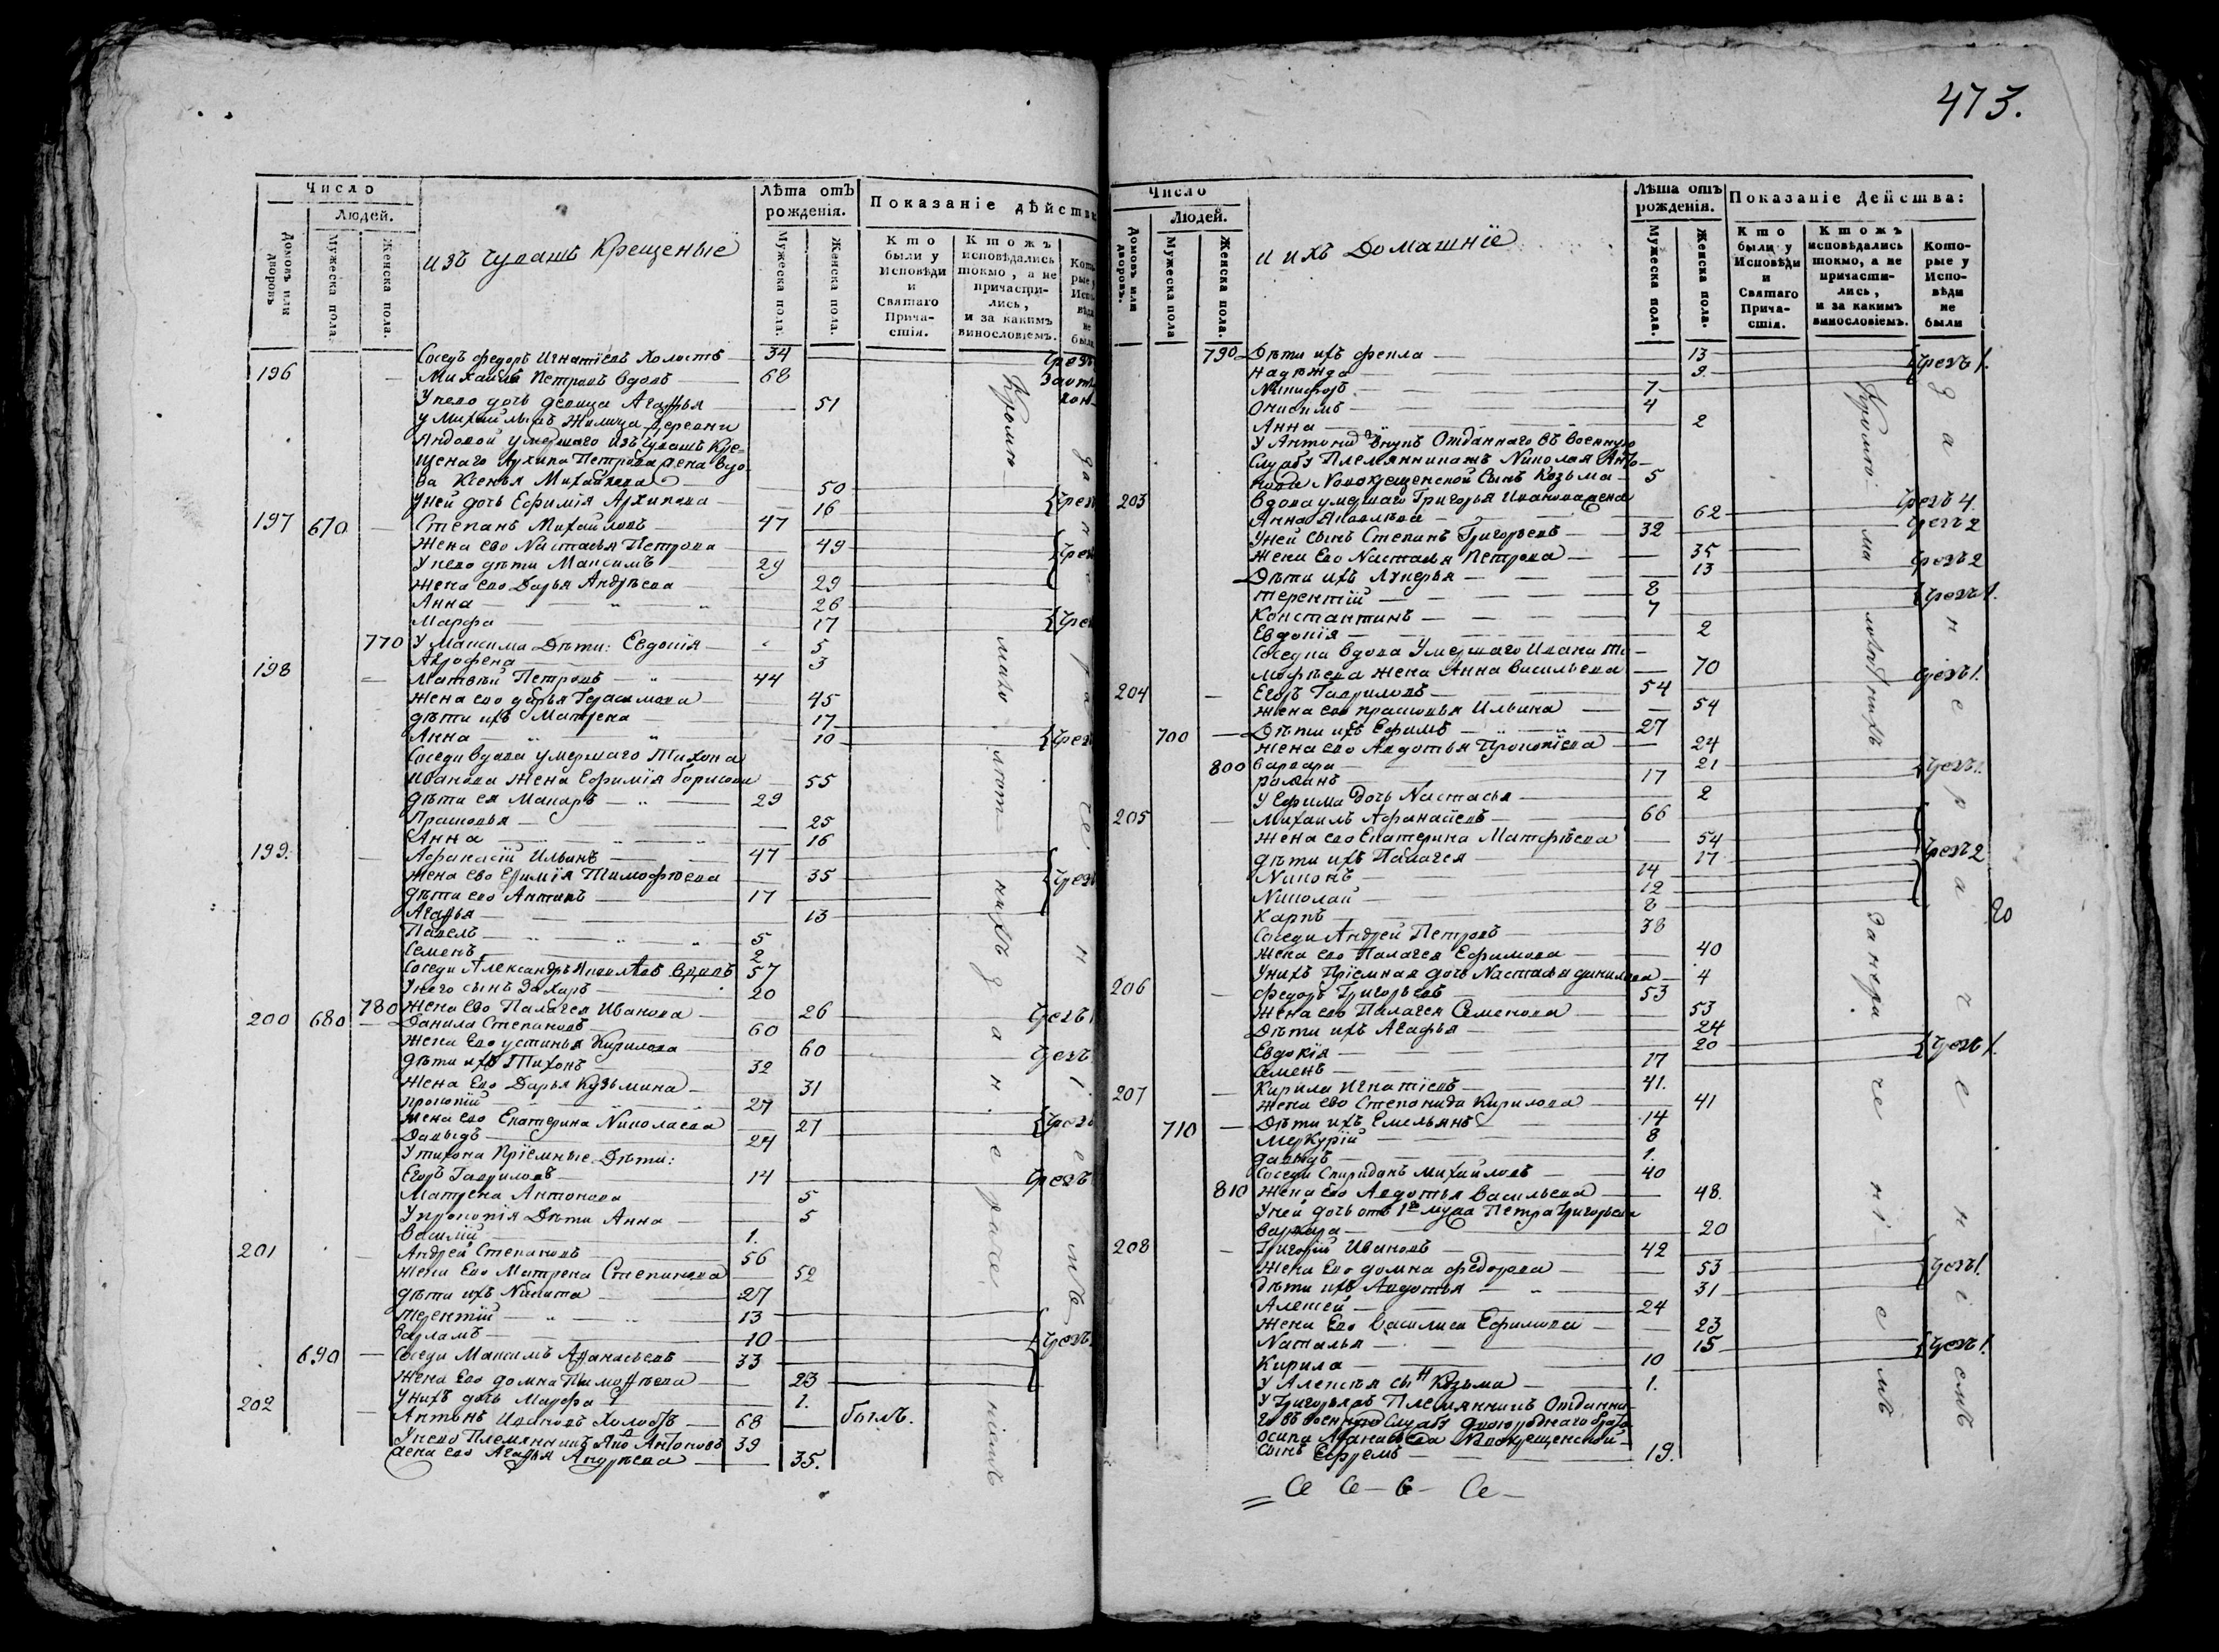 473.
Число
Людей.
Домовъ или дворовъ
Мужеска пола.
Женска пола.
изъ чувашъ Крещеныё
Лѣта отъ рожденія.
Мужеска пола.
Женска пола.
Показаніе дѣйства
Кто были у Исповѣди и Святаго Прича-стія.
Ктожъ исповѣдались токмо, а не причасти-лись, и за какимъ винословіемъ.
Сосѣдъ федоръ Игнатіевъ Холостъ 34
196 Михайла Петровъ вдовъ 68
У нево дочь девица Агафья 51
У Михайлыхъ Жилица деревни
Андовой умершаго изъ чувашъ Кре-
щенаго Архипа Петрова жена вдо
ва Ксенья Михайлова 50
У ней дочь Ефимія Архипова 16
197 670 Степанъ Михайловъ 47
Жена ево Настасья Петрова 49
У нево дѣти Максимъ 29
Жена ево Дарья Андрѣева 29
Анна 26
Марфа 17
770 У Максима Дѣти: Евдокія 5
Агрофена 3
198 Матвѣй Петровъ 44
Жена ево дарья Герасимова 45
дѣти ихъ Матрена 17
Анна 10
Соседи вдова умершаго Тихона
Иванова жена Ефимія борисова 55
дѣти ея Макаръ 29
Прасковья 25
Анна 16
199. Афанасій Ильинъ 47
Жена ево Ефимія Тимофѣева 35
дѣти ево Антипъ 17
Агафья 13
Павелъ 5
Семенъ 2
Соседи Александръ Яковлевъ вдовъ 57
У него сынъ Захаръ 20
780 Жена Ево Палагея Иванова 26
200 680 Данила Степановъ 60
Жена Ево устинья Кирилова 60
дѣти ихъ Тихонъ 32
Жена Ево Дарья Кузьмина 31
прокопій 27
Жена ево Екатерина Николаева 27
Давыдъ 24
У тихона Пріемные Дѣти:
Егоръ Гавриловъ 14
Матрена Антонова 5
У прокопія Дѣти Анна 5
Василій 1.
201 Андрей Степановъ 56
Жена Ево Матрена Степанова 52
дѣти ихъ Никита 27
Терентій 13
Варламъ 10
690 Соседи Максимъ Афанасьевъ 33
Жена Ево домна Тимофѣева 23
У нихъ дочь Марфа 1.
202 Антонъ Ивановъ Холостъ 68 былъ.
У нево Племянникъ Антоновъ 39
жена ево Агафья Андрѣева 35.
Число
Людей.
Домовъ или дворовъ.
Мужеска пола
Женска пола.
и ихъ Домашніё
Лѣта отъ рожденія.
Мужеска пола.
Женска пола.
Показаніе Дейсшва:
Кто были у Исповѣди и Святаго Прича-стія.
Ктожъ исповѣдались токмо, а не причасти-лись, и за какимъ винословіемъ.
Кото-рые у Испо-вѣди не были
790 Дѣти ихъ фекла 13
Надежда 9.
Никифоръ 7
Онисимъ 4
Анна 2
У Антона внукъ Отданнаго въ военную
Службу Племянникомъ Николая Анто-
нова Новокрещенской Сынъ Козьма 5
203 Вдова умершаго Григорья Иванова жена
Анна Яковлева 62
У ней сынъ Степанъ Григорьевъ 32
Жена Ево Настасья Петрова 35
Дѣти ихъ Лукерья 13
терентій 8
Константинъ 7
Евдокія 2
Соседка вдова Умершаго Ивана Ти-
мофѣева жена Анна Васильева 70
204 Егоръ Гавриловъ 54
Жена ево прасковья Ильина 54
700 Дѣти ихъ Ефимъ 27
Жена ево Авдотья Прокопіева 24
800 Варвара 21
Романъ 17
У Ефима дочь Настасья 2
205 Михаилъ Афанасіевъ 66
Жена ево Екатерина Матфѣева 54
дѣти ихъ Палагея 17
Никонъ 14
Николай 12
Карпъ 8
Соседи Андрей Петровъ 38
Жена ево Палагея Ефимова 40
У нихъ Пріемная дочь Настасья данилова 4
206 Федоръ Григорьевъ 53
Жена ево Палагея Семенова 53
Дѣти ихъ Агафья 24
Евдокія 20
Семенъ 17
207 Кирила Игнатіевъ 41.
Жена ево Степонида Кирилова 41
710 Дѣти ихъ Емельянъ 14
Меркурій 8
давыдъ 1.
Соседи Спиридонъ Михайловъ 40
810 Жена Ево Авдотья Васильева 48.
У ней дочь отъ 1го мужа Петра Григорьева
Варвара 20
208 Григорій Ивановъ 42
Жена Ево домна федорова 53
дѣти ихъ Авдотья 31
Алексей 24
Жена Ево Василиса Ефимова 23
Наталья 15
Кирила 10
У Алексѣя сынъ Козьма 1.
У Григорья Племянникъ Отданна-
го въ военную Службу двоюроднаго брата
осипа Афанасьева Новокрещенской
сынъ Ефремъ 19.
20